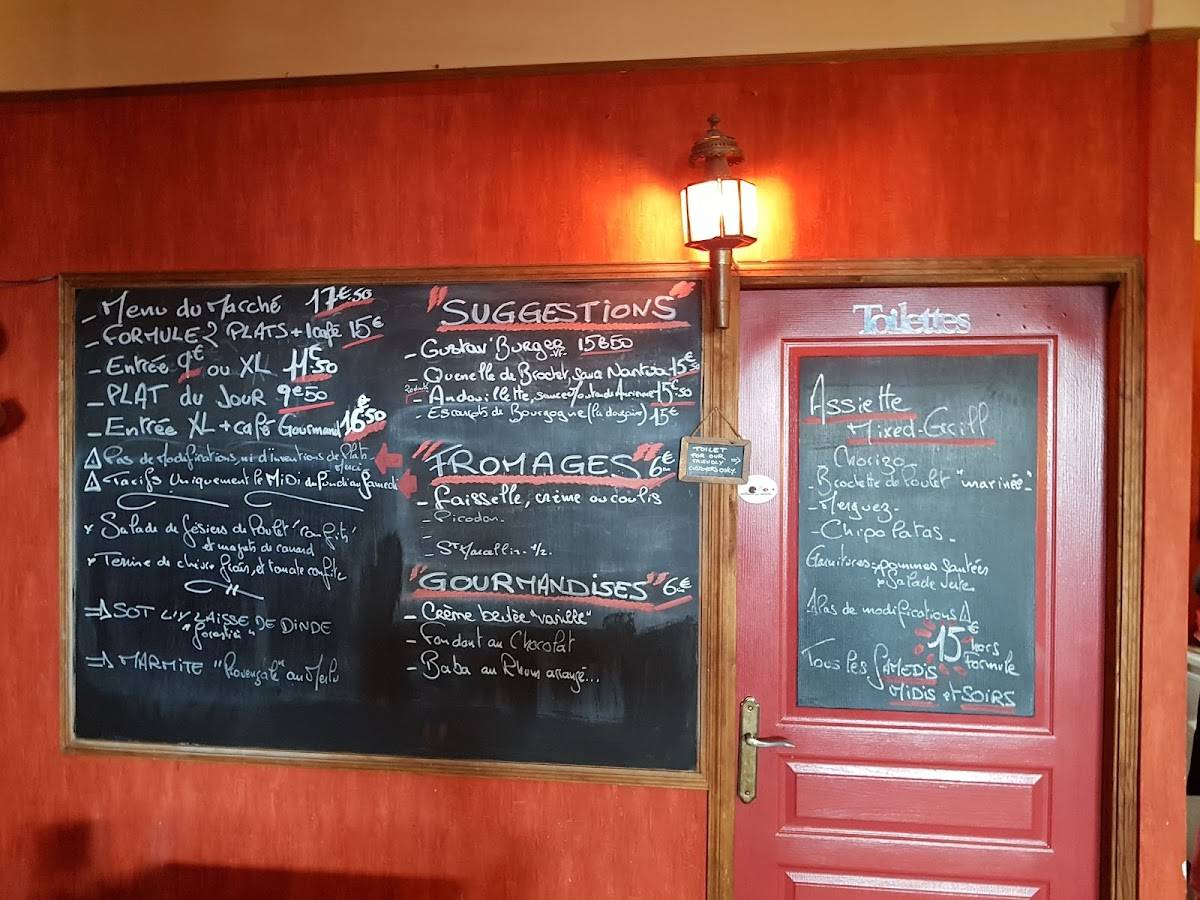 - Menu du Marché 17€50
- FORMULE 2 PLATS + 1 café 15€
- Entrée 9€ ou XL 11€50
- PLAT du JouR 9€50
- Entrée XL + café Gourmand 16€50
⚠ Pas de Modifications, ni d'inventions de Plats
Merci
⚠ tarifs Uniquement le MiDi du Lundi au Samedi
* Salade de Gésiers de Poulet "confits"
et magrets de canard
* Terrine de chèvre frais, et tomate confite
=> SOT L'Y LAISSE DE DINDE
"forestier"
=> MARMITE "Provençale" au Merlu
"SUGGESTIONS"
- Gustav'Burger VF 15€50
- Quenelle de Brochet, Sauce Nantua 15€50
- Andouillette, sauce Moutarde 15€50
- Escargots de Bourgogne (la douzaine) 15€
"FROMAGES" 6€
- Faisselle, crème ou coulis
- Picodon
-
- St Marcellin - 1/2
"GOURMANDISES" 6€
- Crème brulée "vanille"
- Fondant au Chocolat
- Baba au Rhum arrangé...
TOILET
FOR OUR
FRIENDLY
CUSTOMERS ONLY. =>
Toilettes
Assiette
Mixed-Grill
- Chorizo
- Brochette de Poulet "marinée"
- Merguez
- Chipolatas
Garnitures: pommes sautées
* Salade verte
⚠ Pas de modifications ⚠
15€ hors
Formule
Tous les SAMEDIS
MiDiS et SOIRS